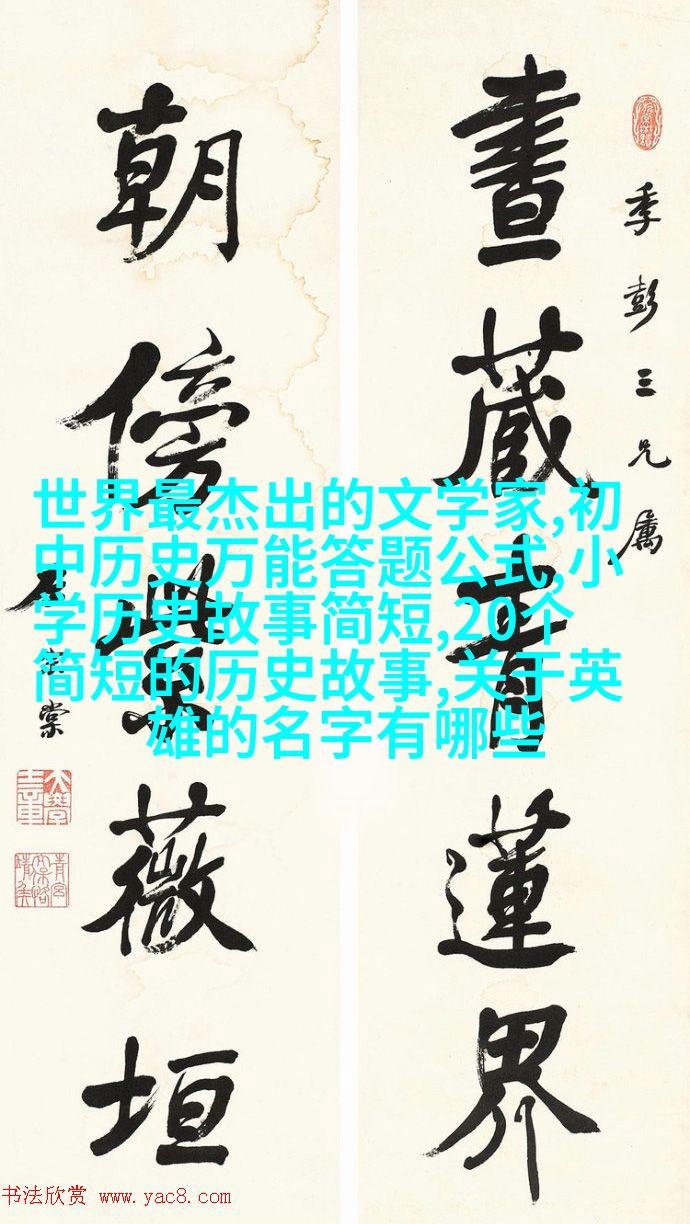 季彭三兄属
晝藏青蓮界
朝傍紫薇垣
左宗棠
世界最杰出的文学家,初
中历史万能答题公式,小
学历史故事简短,20个
简短的历史故事,关于英
雄的名字有哪些
书法欣赏 www.yac8.com